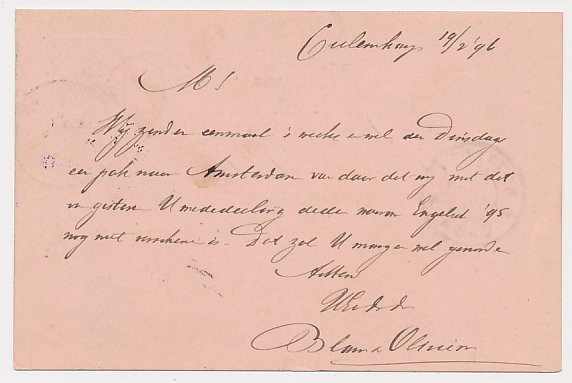 Culemborg 19/2 '96
M!
Wij zenden eenmaal 's weeks & wel den Dinsdag
een pak naar Amsterdam van daar dat wij met dat
gisteren U mededeeling deden waren Engelsch '95
nog niet verschenen is. Dat zal U morgen wel geworden
Achtend
UEd d d
Blom & Olivierse